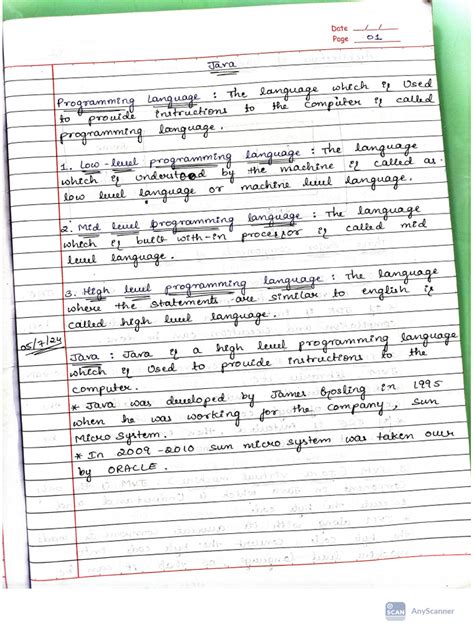 Date / /
Page 01
Java
Programming Language : The language which is Used
to provide instructions to the computer is called
programming language .
1. Low - level programming language : The language
which is understood by the machine is called as
low level language or machine level language .
2. Mid level programming language : The language
which is built with-in processor is called mid
level language .
3. High level programming language : The language
where the statements are similar to english is
called high level language .
05/7/24
Java : Java is a high level programming language
which is Used to provide instructions to the
computer .
* Java was developed by James Gosling in 1995
when he was working for the company , Sun
Micro System .
* In 2009 - 2010 sun micro system was taken over
by ORACLE .
SCAN AnyScanner